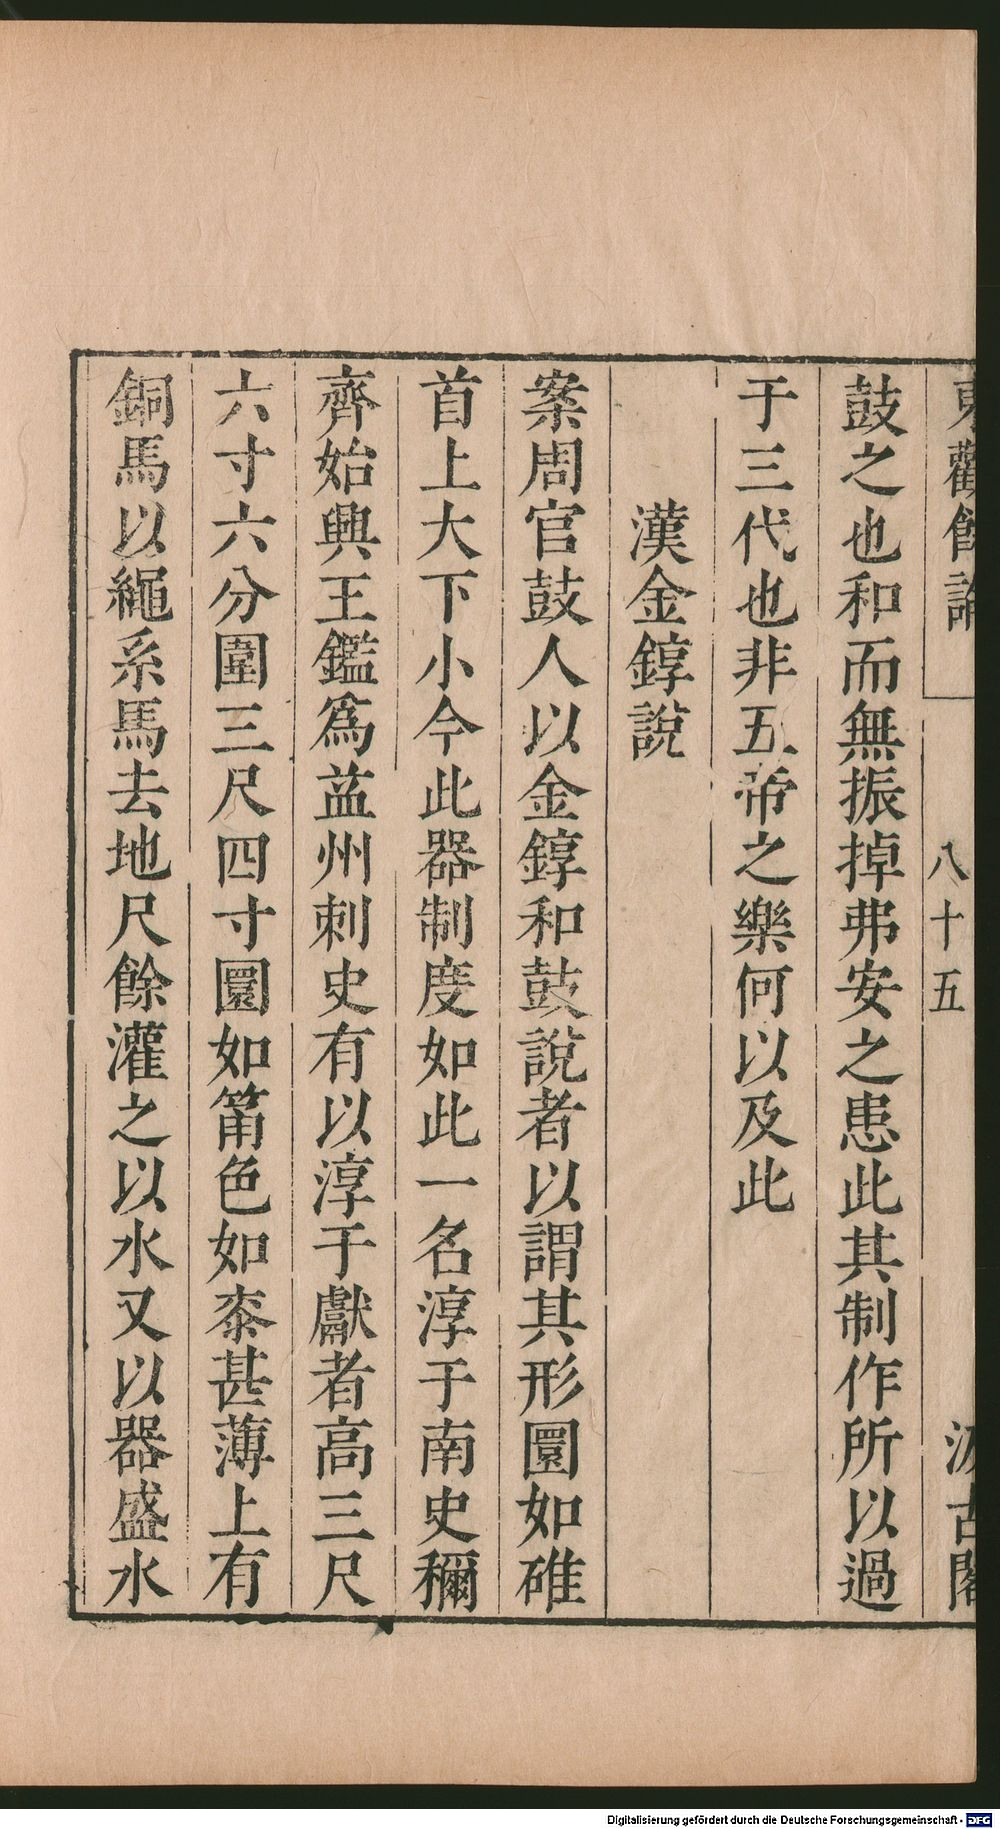 東觀餘論 八十五 汲古閣
鼓之也和而無振掉弗安之患此其制作所以過
于三代也非五帝之樂何以及此
漢金錞說
案周官鼓人以金錞和鼓說者以謂其形圜如碓
首上大下小今此器制度如此一名淳于南史穪
齊始興王鑑爲益州刺史有以淳于獻者高三尺
六寸六分圍三尺四寸圜如筩色如桼甚薄上有
銅馬以繩系馬去地尺餘灌之以水又以器盛水
Digitalisierung gefördert durch die Deutsche Forschungsgemeinschaft - DFG